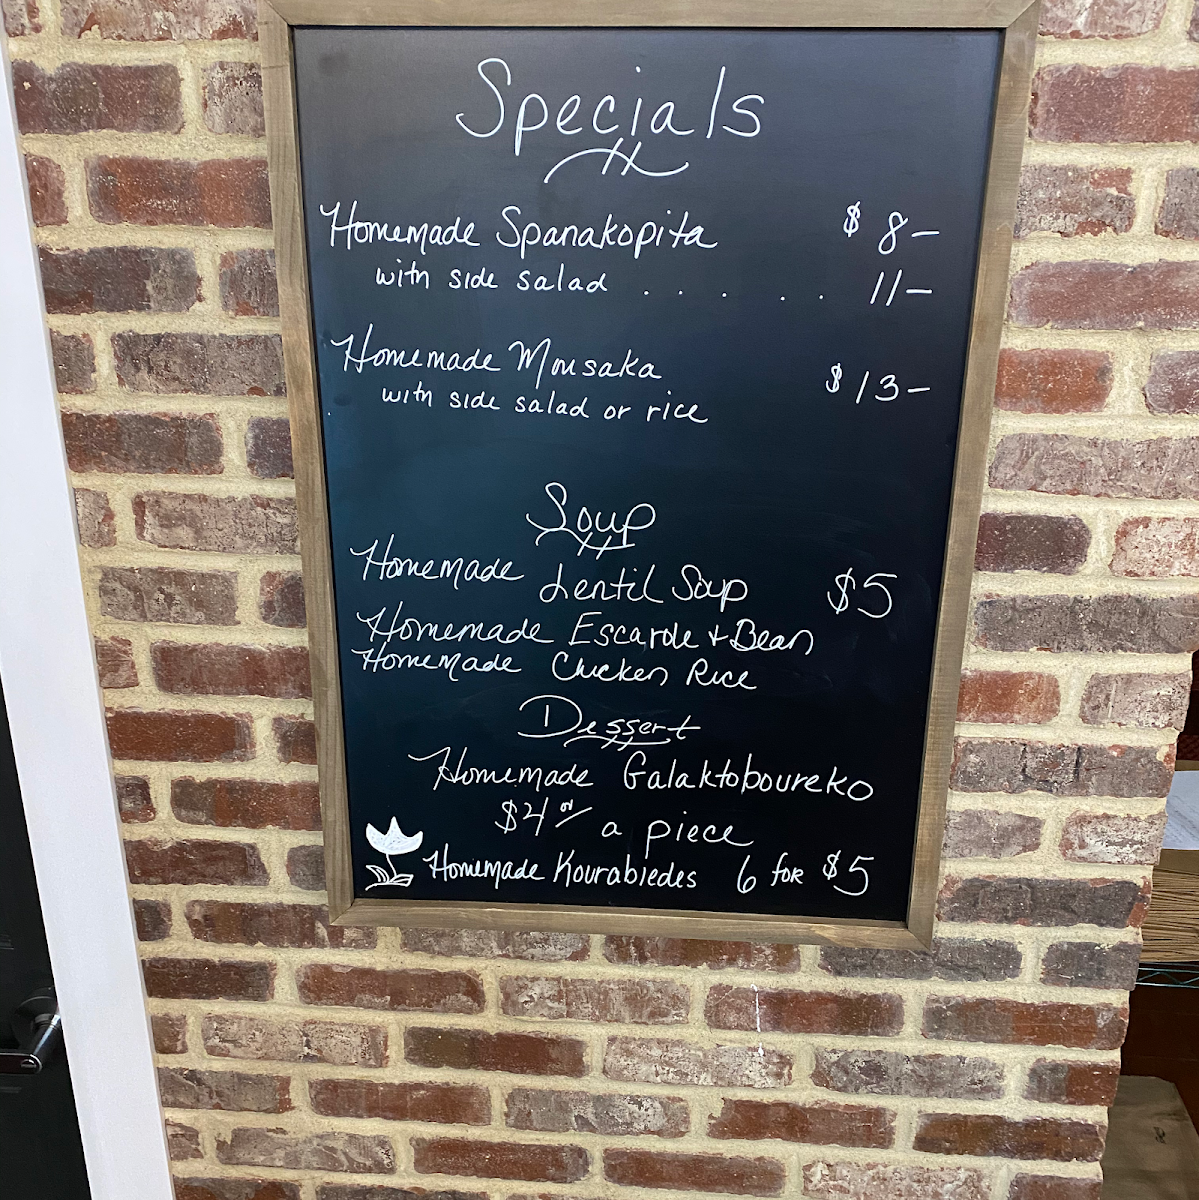 Specials
Homemade Spanakopita $8-
with side salad . . . . . 11-
Homemade Mousaka
with side salad or rice $13-
Soup
Homemade Lentil Soup $5
Homemade Escarole + Bean
Homemade Chicken Rice
Dessert
Homemade Galaktoboureko
$4 00/ a piece
Homemade Kourabiedes 6 for $5